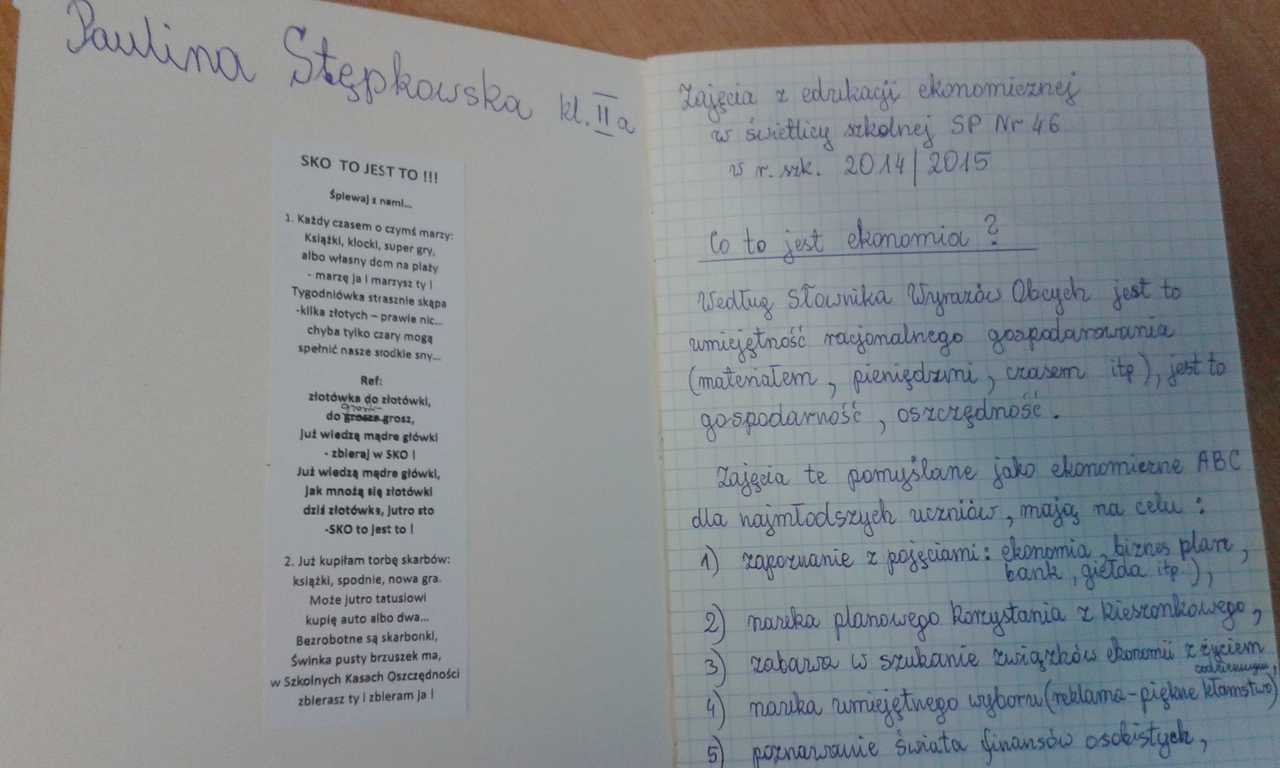 Paulina Stępkowska kl. II a
SKO TO JEST TO !!!
Śpiewaj z nami...
1. Każdy czasem o czymś marzy:
Książki, klocki, super gry,
albo własny dom na plaży
- marzę ja i marzysz ty !
Tygodniówka strasznie skąpa
-kilka złotych – prawie nic...
chyba tylko czary mogą
spełnić nasze słodkie sny...
Ref:
złotówka do złotówki,
do grosza grosz,
Już wiedzą mądre główki
- zbieraj w SKO !
Już wiedzą mądre główki,
jak mnożą się złotówki
dziś złotówka, jutro sto
-SKO to jest to !
2. Już kupiłam torbę skarbów:
książki, spodnie, nowa gra.
Może jutro tatusiowi
kupię auto albo dwa...
Bezrobotne są skarbonki,
Świnka pusty brzuszek ma,
w Szkolnych Kasach Oszczędności
zbierasz ty i zbieram ja !
Zajęcia z edukacji ekonomicznej
w świetlicy szkolnej SP Nr 46
w r. szk. 2014/2015
Co to jest ekonomia ?
Według Słownika Wyrazów Obcych jest to
umiejętność racjonalnego gospodarowania
(materiałem, pieniędzmi, czasem itp), jest to
gospodarność, oszczędność.
Zajęcia te pomyślane jako ekonomiczne ABC
dla najmłodszych uczniów, mają na celu :
1) zapoznanie z pojęciami: ekonomia, biznes plan,
bank, giełda itp.),
2) nauka planowego korzystania z kieszonkowego,
3) zabawa w szukanie związków ekonomii z życiem
codziennym,
4) nauka umiejętnego wyboru (reklama-piękne kłamstwo)
5) poznawanie świata finansów osobistych,